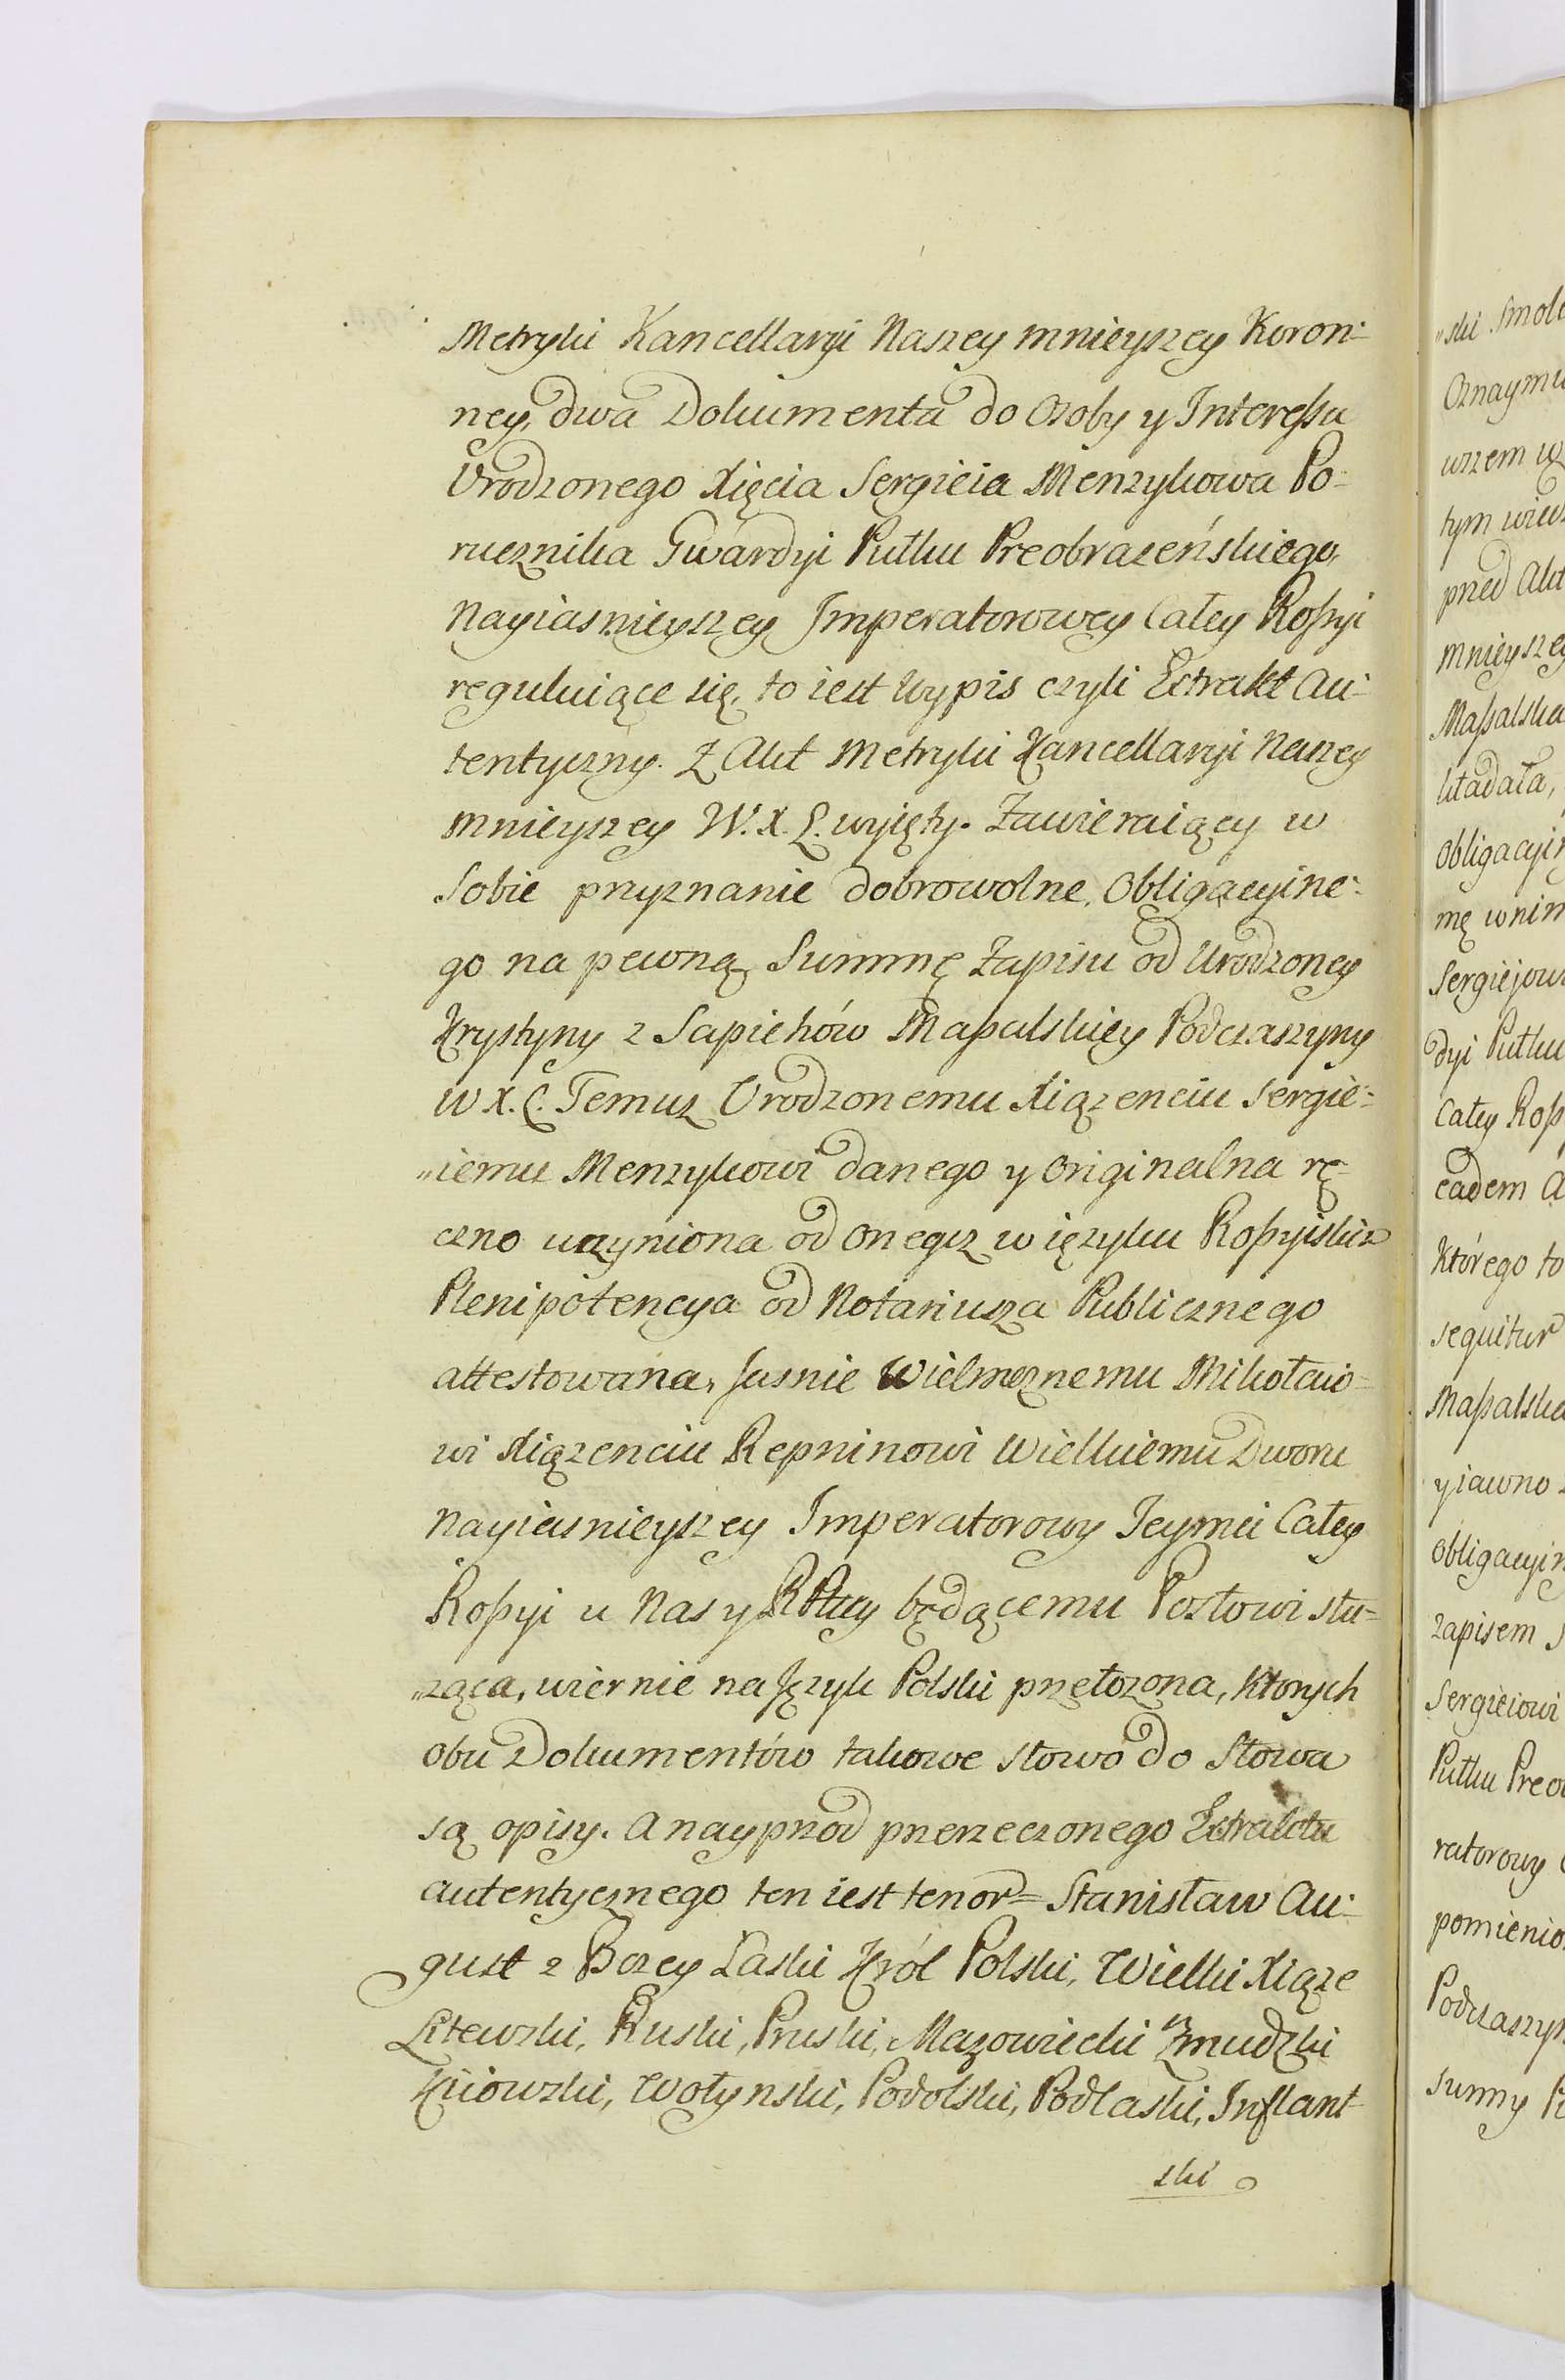 Metryki Kancellaryi Naszey mnieyszey Koron=
ney, dwa Dokumenta do Osoby y Interessu
Urodzonego Xięcia Sergieia Menzykowa Po=
rucznika Gwardyi Pułku Preobrazeńskiego,
Nayiasnieyszey Imperatorowey Całey Rossyi
reguluiące się, to iest Wypis czyli Extrakt Au=
tentyczny. Z Akt Metryki Kancellaryi Naszey
mnieyszey W. X. L. wyięty. Zawieraiący w
Sobie przyznanie dobrowolne, Obligacyine=
go na pewną Summę Zapisu od Urodzoney
Krystyny z Sapiehów Massalskiey Podczaszyny
W X. L. Temuz Urodzonemu Xiązenciu Sergie=
„iemu Menzykowi danego y Originalna rę=
czno uczyniona od Onegoz w ięzyku Rossyiskim
Plenipotencya od Notariusza Publicznego
attestowana, Jasnie Wielmoznemu Mikołaio=
wi Xiązenciu Repninowi Wielkiemu Dworu
Nayiasnieyszey Imperatorowy Jeymci Całey
Rossyi u Nas y RPltey będącemu Posłowi słu=
„ząca, wiernie na Język Polski przełozona, Ktorych
obu Dokumentów takowe słowo do Słowa
są opisy. A nayprzod przerzeczonego Extraktu
autentycznego ten iest tenor= Stanisław Au=
gust z Bozey Łaski Król Polski, Wielki Xiąze
Litewski, Ruski, Pruski, Mazowiecki Zmudzki
Kiiowski, Wołynski, Podolski, Podlaski, Inflant
ski
„ski Smole
Oznaymu
wszem w
tym wied
przed Akt
mnieyszey
Massalska
kładała,
Obligacyi
mę w nim
Sergiejow
dyi Pułku
Całey Ross
eadem
Którego to
sequitur
Massalska
y iawno
Obligacyin
zapisem
Sergieiowi
Pułku Preo
ratorowy
pomienio
Podczaszyn
Summy